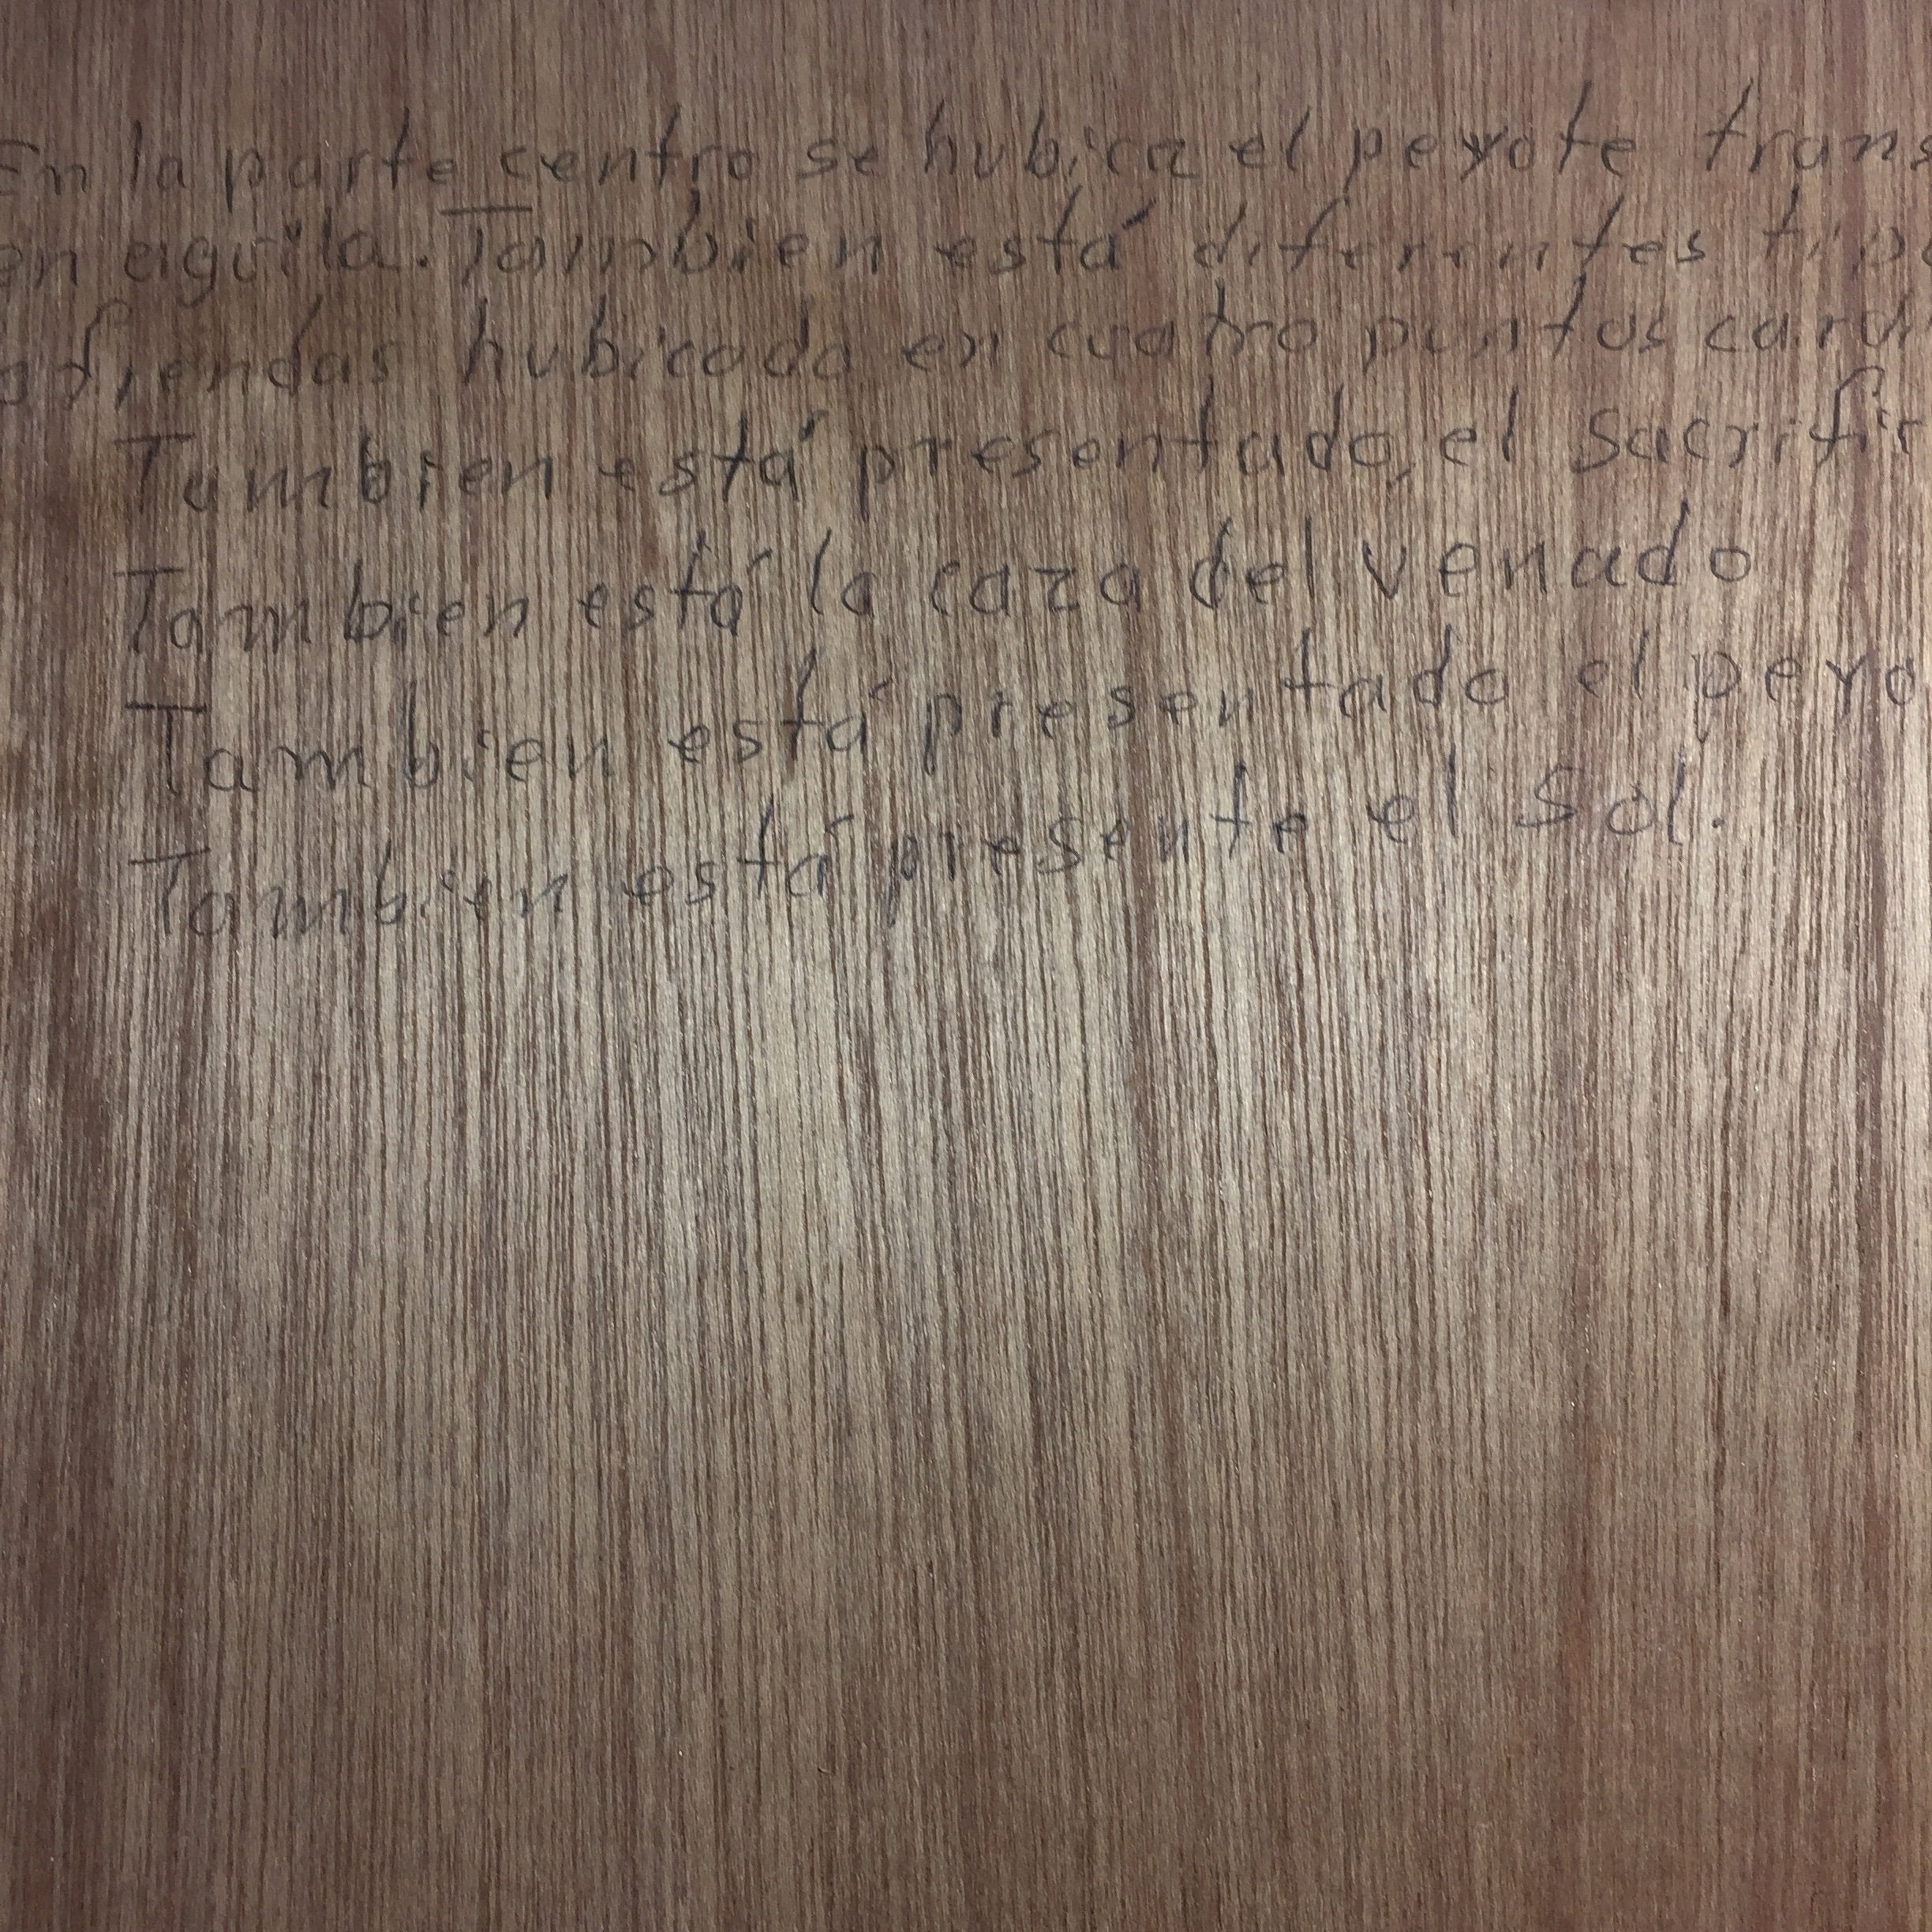 En la parte centro se hubica el peyote trans
en aguila. Tambien está diferentes tipo
ofrendas hubicado en cuatro puntos cardi
Tambien está presentado, el sacrific
Tambien está la caza del venado
Tambien está presentado el peyo
Tambien está presente el Sol.